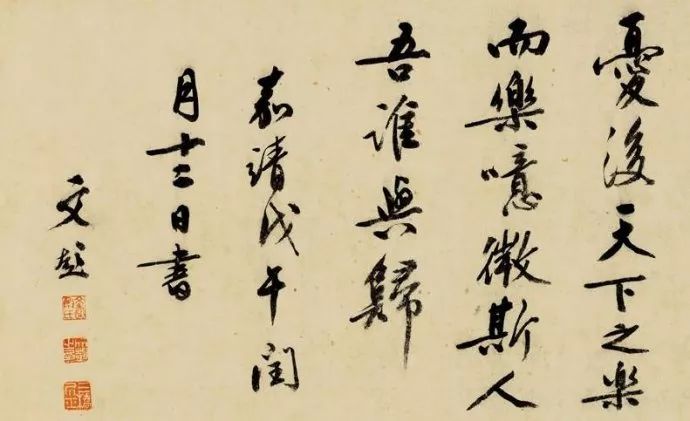 憂後天下之樂
而樂噫微斯人
吾誰與歸
嘉靖戊午閏
月十二日書
文彭